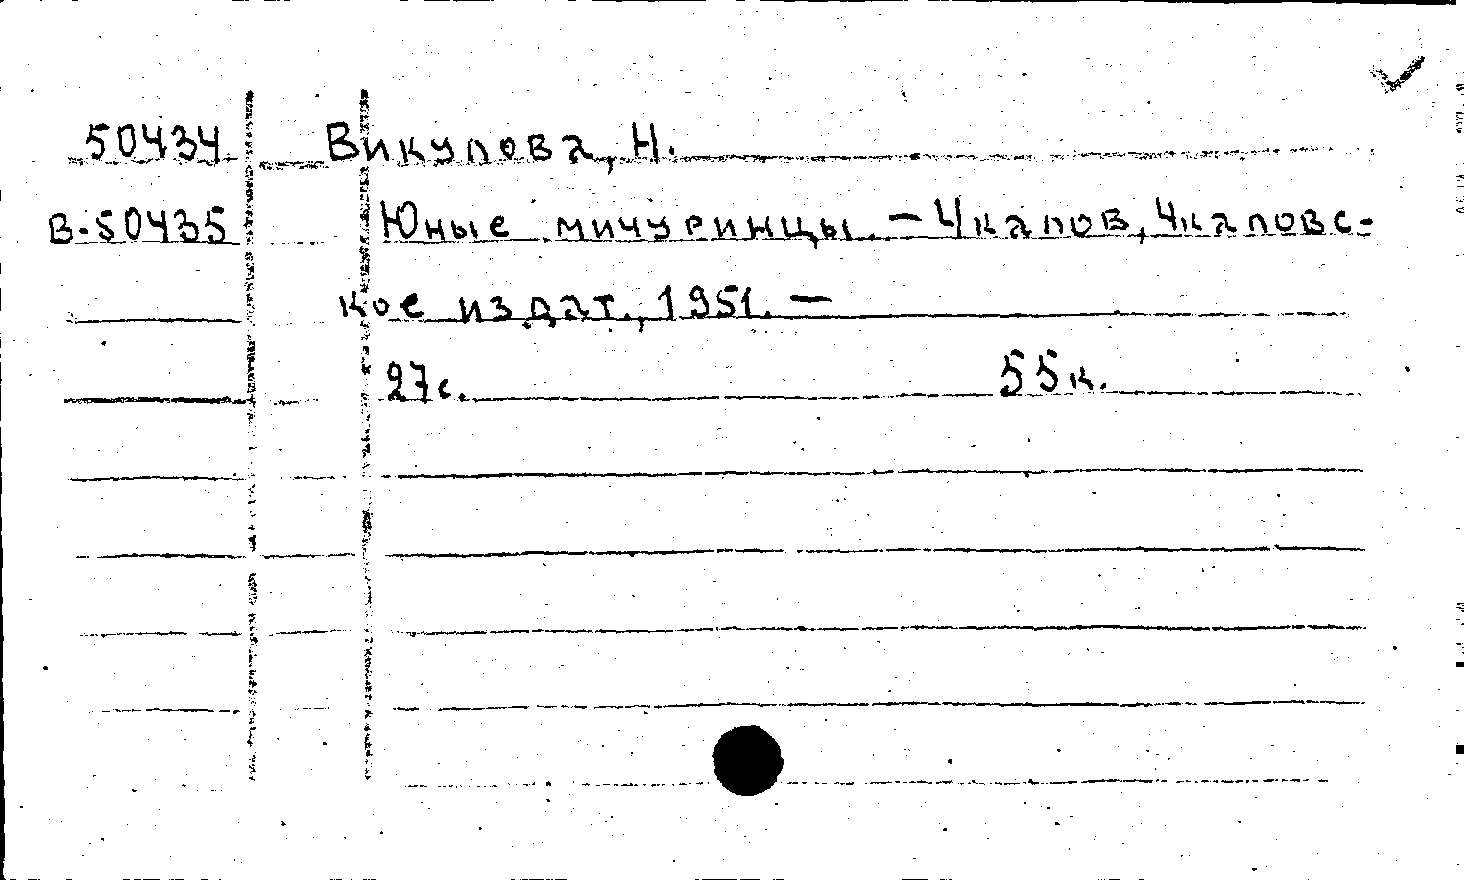 50434 Викулова, Н.
В-50435 Юные мичуринцы. – Чкалов, Чкаловс-
кое издат., 1951. –
27с. 55к.